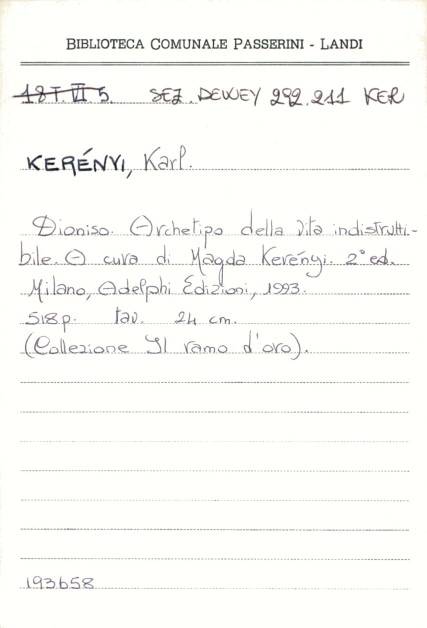 BIBLIOTECA COMUNALE PASSERINI - LANDI
18T.VI.5. SEZ. DEWEY 292.211 KER
KERÉNYI, Karl.
Dioniso. Archetipo della vita indistrutti-
bile. A cura di Magda Kerényi. 2° ed.
Milano, Adelphi Edizioni, 1993.
518 p. tav. 24 cm.
(Collezione Il ramo d'oro).
193658